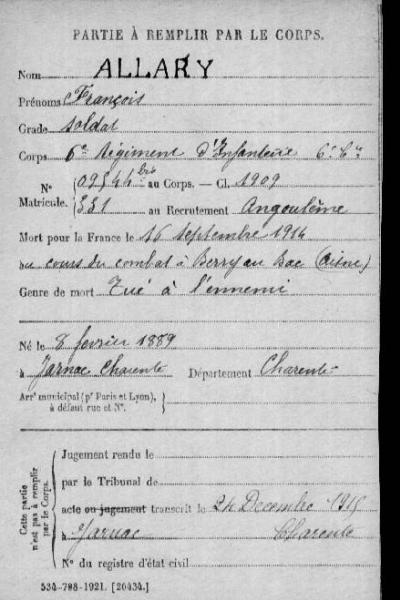 PARTIE À REMPLIR PAR LE CORPS.
Nom ALLARY
Prénoms François
Grade Soldat
Corps 6e Régiment D'Infanterie 6e Cie
N° 09544 bis au Corps. — Cl. 1909
Matricule. 331 au Recrutement Angoulême
Mort pour la France le 16 Septembre 1914
au cours du combat à Berry au Bac (Aisne)
Genre de mort Tué à l'ennemi
Né le 8 février 1889
à Jarnac Charente Département Charente
Arrt municipal (pr Paris et Lyon),
à défaut rue et N°.
Cette partie n'est pas à remplir par le Corps.
Jugement rendu le
par le Tribunal de
acte ou jugement transcrit le 24 Decembre 1915
à Jarnac Charente
N° du registre d'état civil
534-708-1921. [26434.]